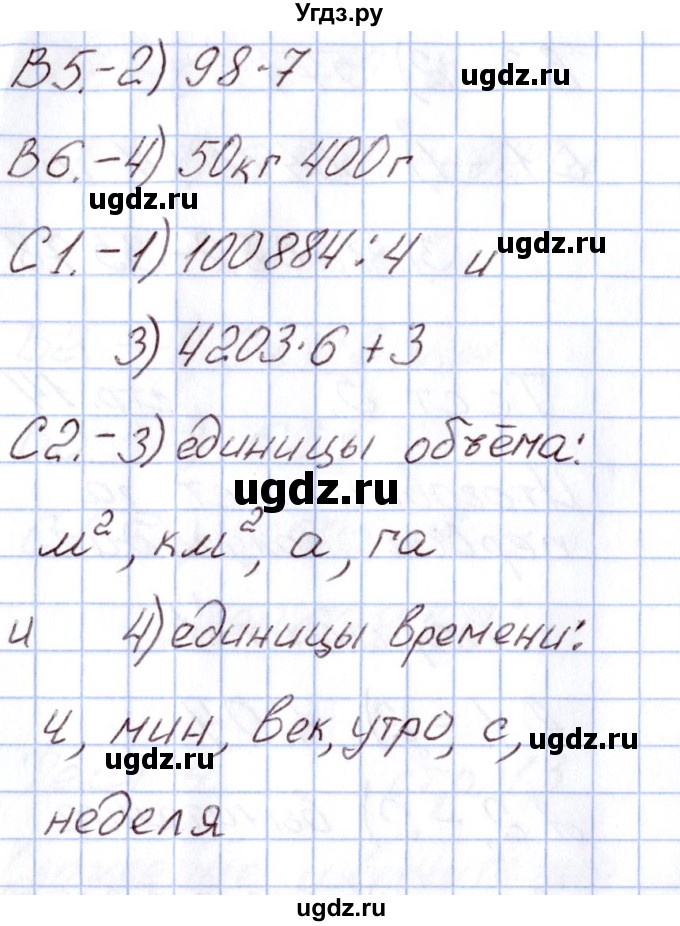 Угдз.ру
В5.-2) 98·7
ugdz.ru
В6.-4) 50кг 400г
ugdz.ru
С1.-1) 100884:4 и
ugdz.ru
3) 4203·6+3
С2.-3) единицы объёма:
ugdz.ru
м², км², а, га
и 4) единицы времени:
ч, мин, век, утро, с,
ugdz.ru
ugdz.ru
неделя
ugdz.ru